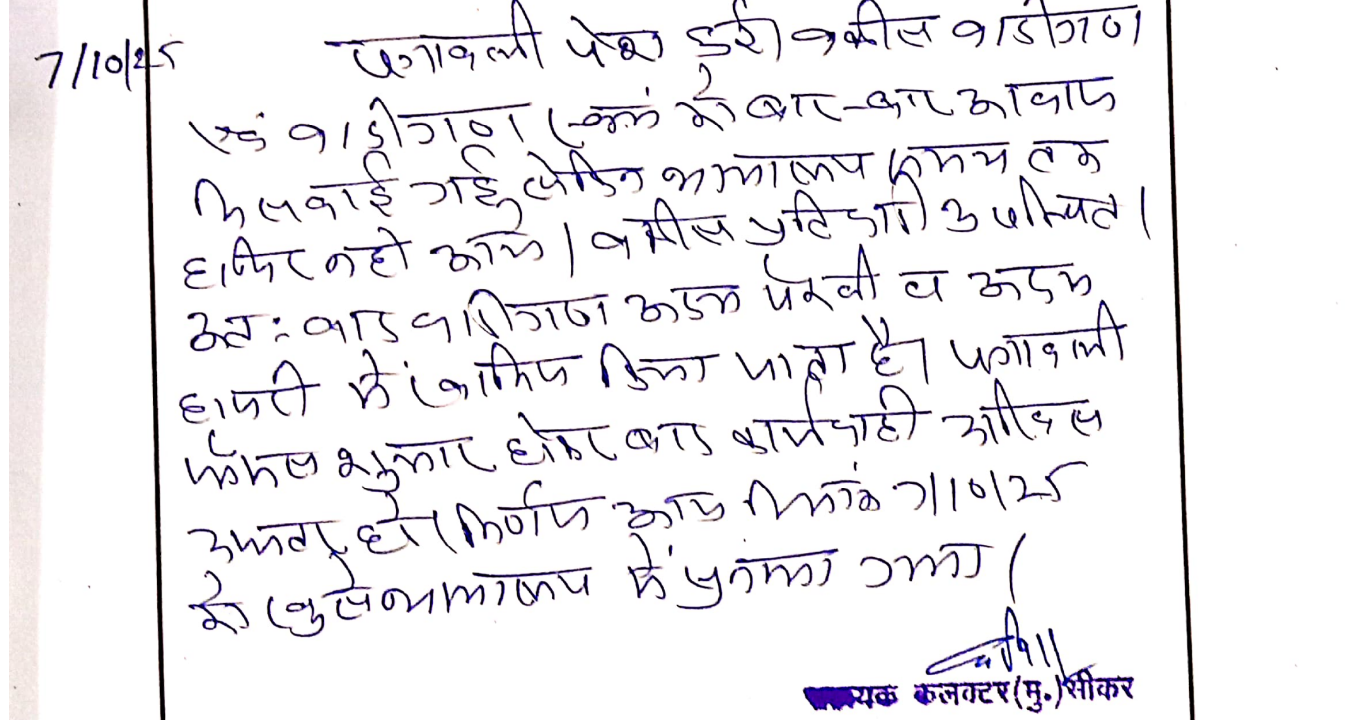 7/10/25 पत्रावली पेश हुई। वकील वादीगण
एवं वादीगण स्वयं को बार-बार आवाज
दिलवाई गई, लेकिन न्यायालय समय तक
हाजिर नहीं आये। वकील प्रतिवादी उपस्थित।
अतः वाद वादीगण अदम पैरवी व अदम
हाजरी में खारिज किया जाता है। पत्रावली
फैसल शुमार होकर बाद कार्यवाही दाखिल
दफ्तर हो। निर्णय आज दिनांक 7/10/25
को खुले न्यायालय में सुनाया गया।
यक कलक्टर (मु.) सीकर